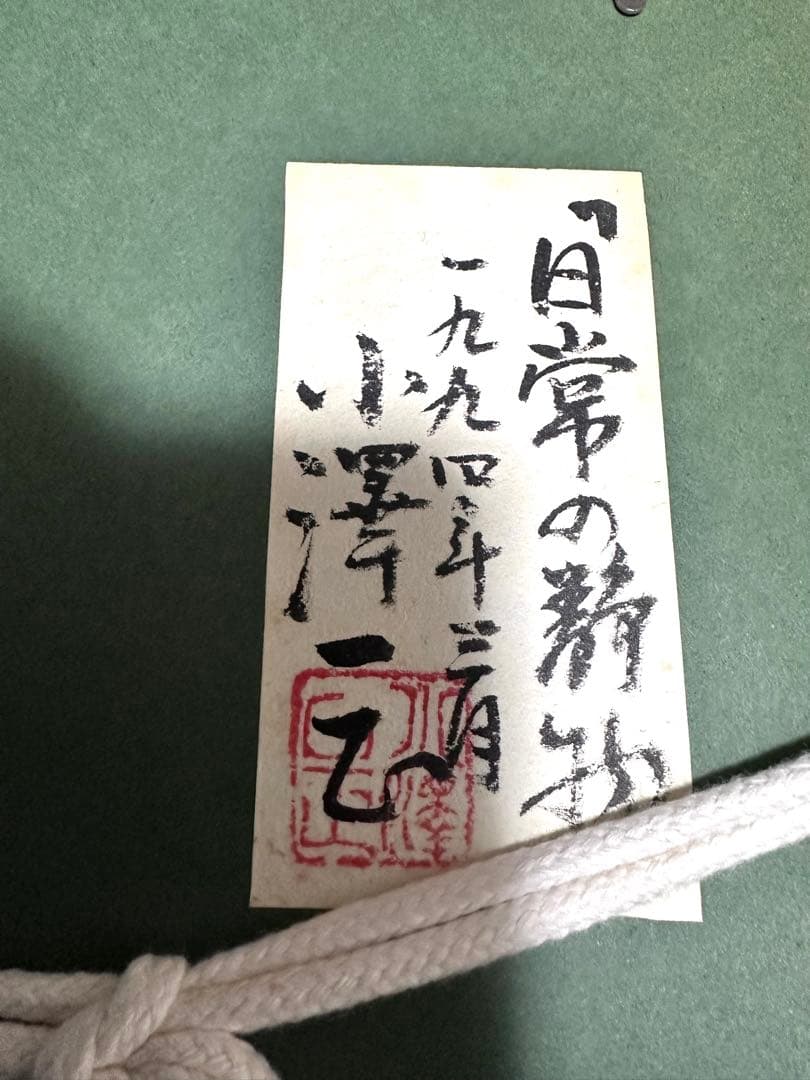 「日常の静物
一九九四年三月
小澤
小澤